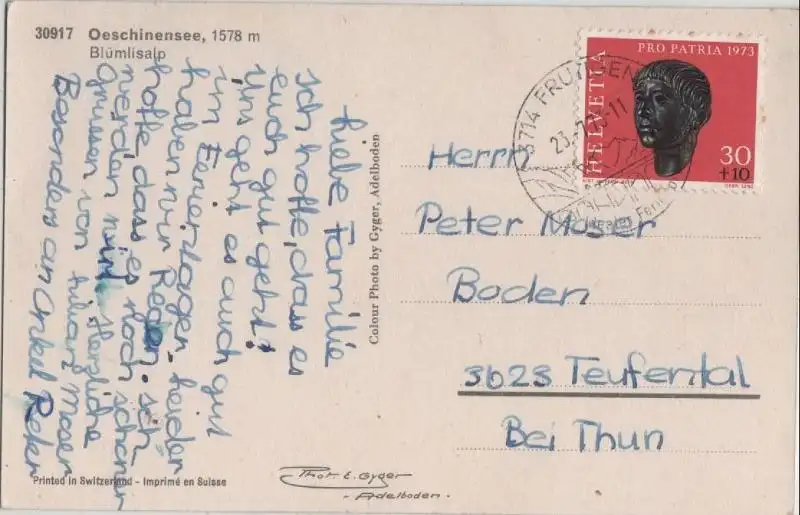 30917 Oeschinensee, 1578 m
Blümlisalp
Liebe Familie
Ich hoffe, dass es
euch gut geht!
Uns geht es auch gut
im Ferienlager. Leider
haben wir Regen. Ich
hoffe, dass es noch schöner
werden wird. Herzliche
Grüsse von Moser
Besonders an Onkel Peter
Colour Photo by Gyger, Adelboden
Printed in Switzerland - Imprimé en Suisse
Phot. E. Gyger
- Adelboden -
HELVETIA
PRO PATRIA 1973
30
+10
3714 FRUTIGEN
Herrn
Peter Moser
Boden
3623 Teufental
Bei Thun